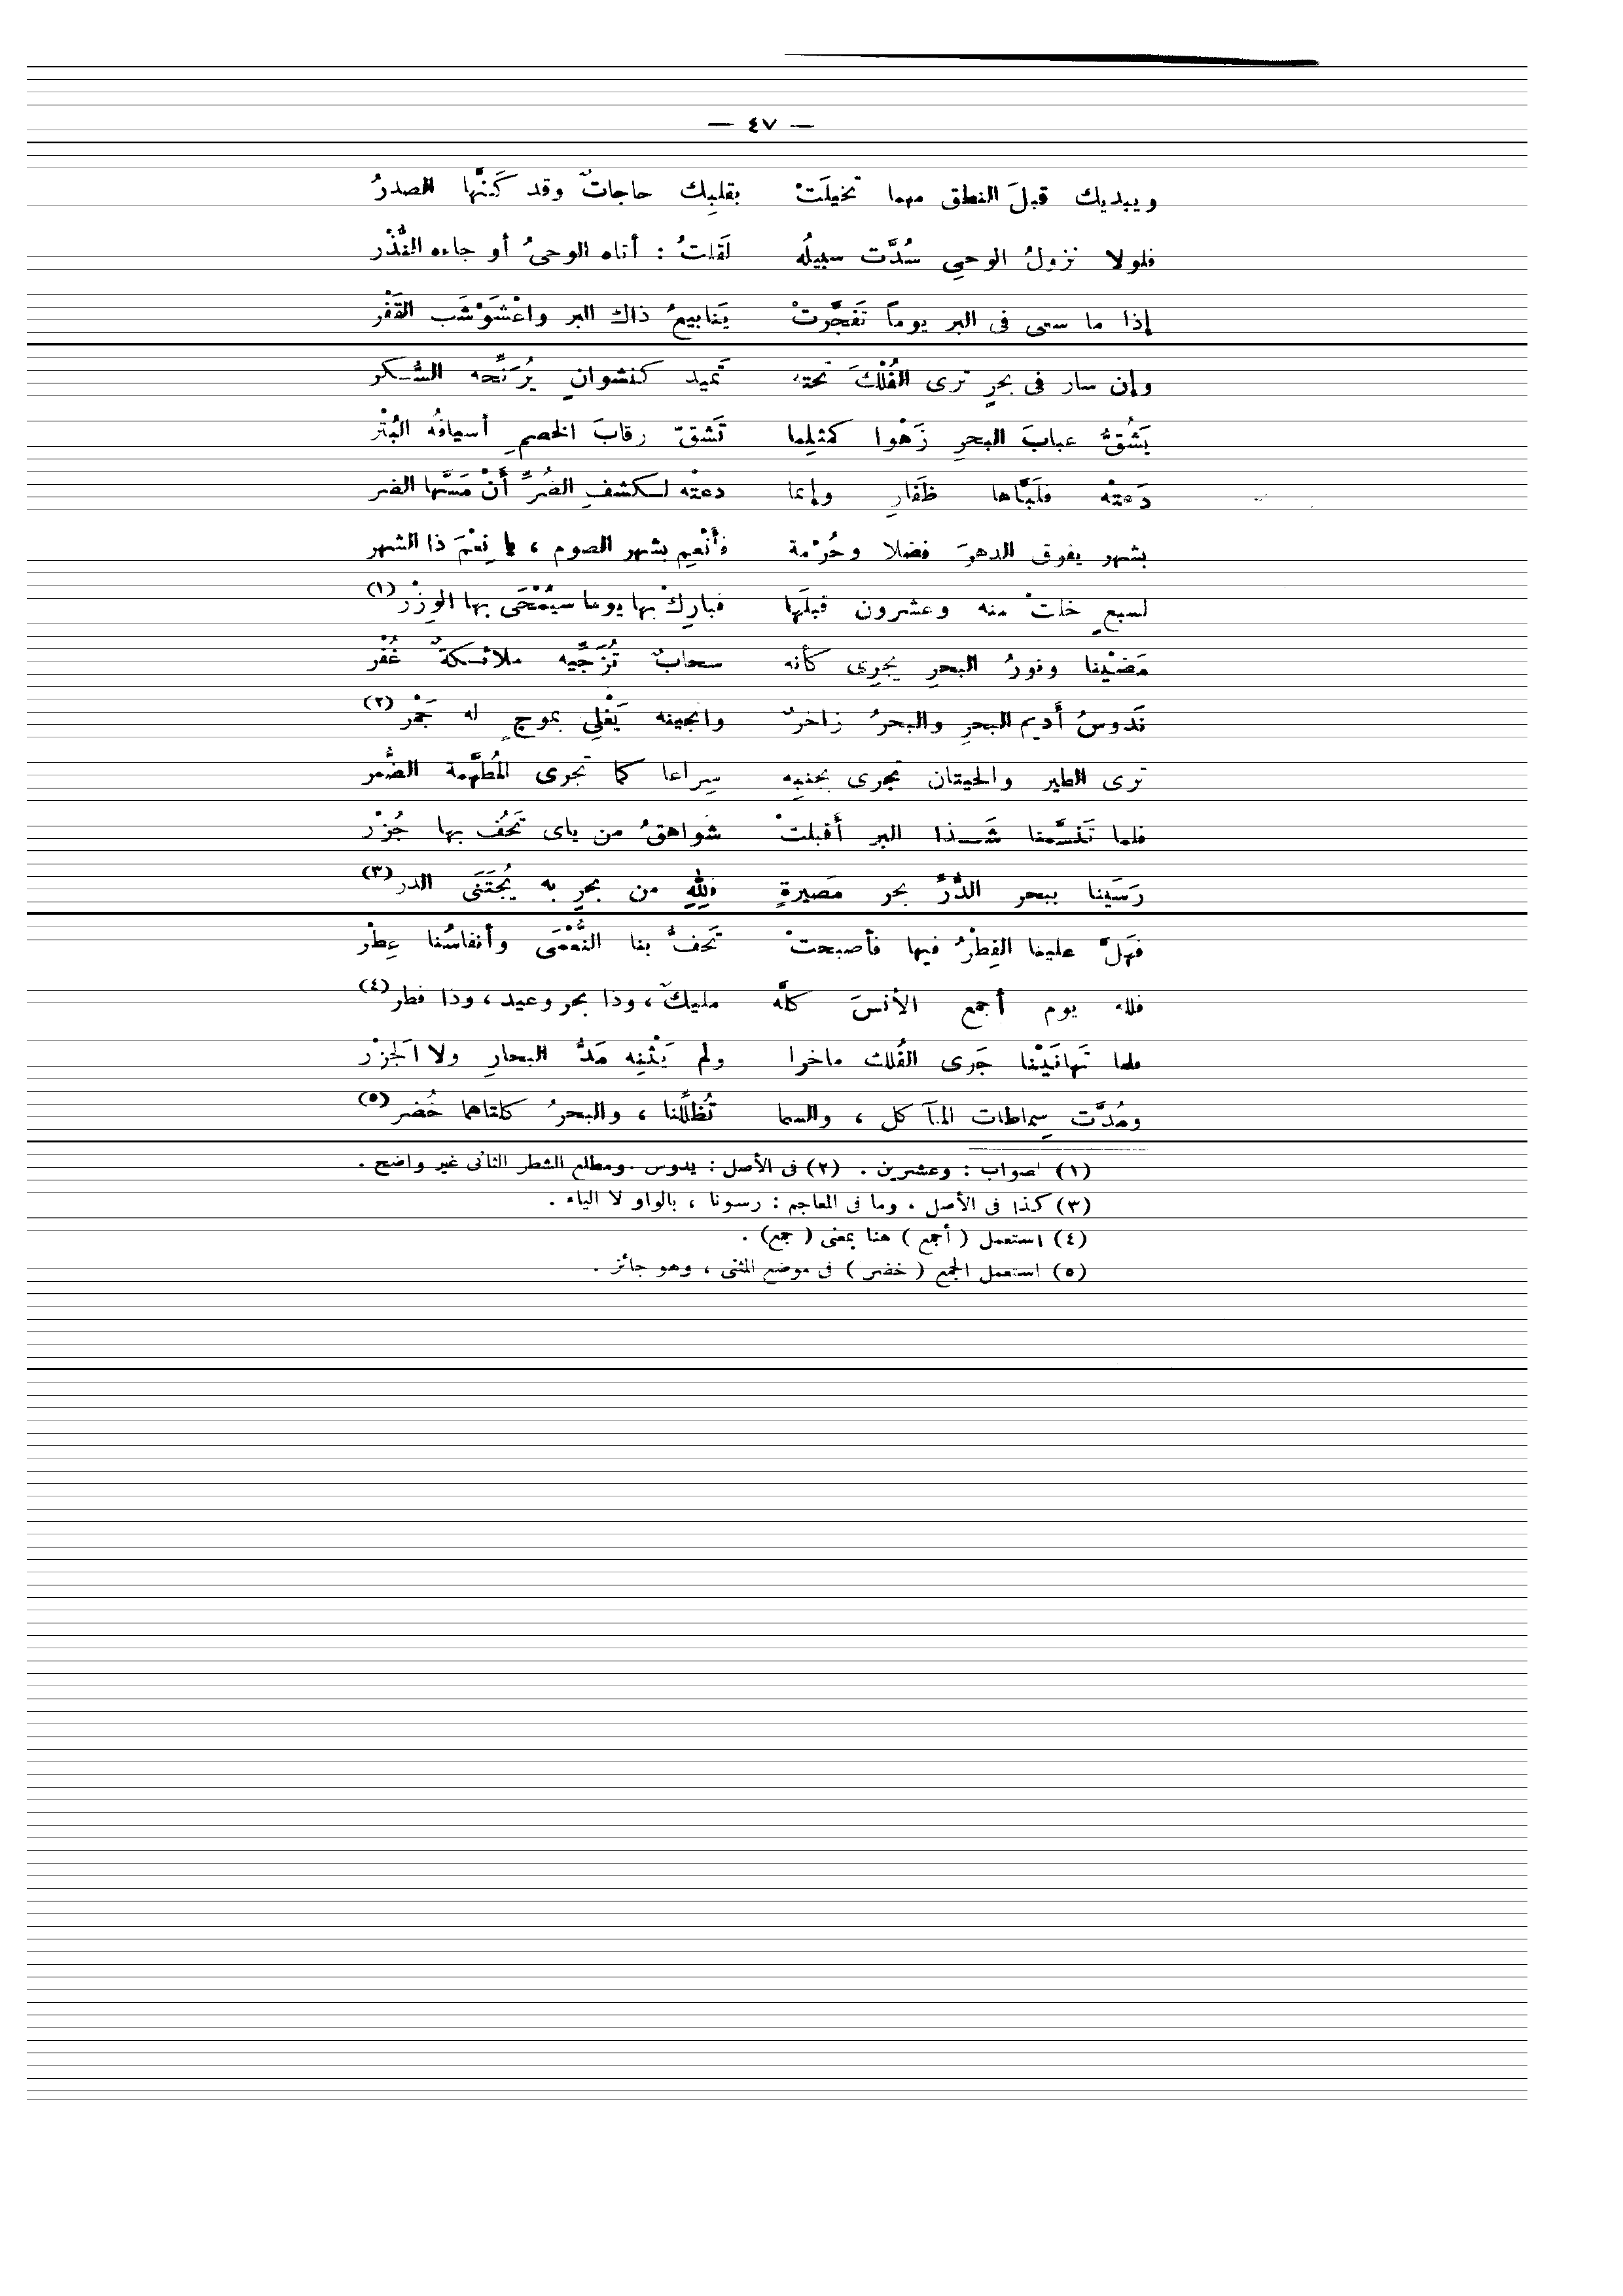 — ٤٧ —
ويبديك قبلَ النطق مهما تخيلَتْ بقلبك حاجاتٌ وقد كَنَّها الصدرُ
فلولا نزولُ الوحىِ سُدَّت سبيلُه لَقلتُ : أتاه الوحىُ أو جاءه النُّذْر
إذا ما سعى فى البر يوماً تَفجَّرتْ يَنابيعُ ذاك البر واعْشَوْشَب القَفْر
وإن سار فى بحرٍ ترى الفُلْكَ تحتَه تَميد كنشوانٍ يُرَنِّحه السُّكر
يَشُقُّ عبابَ البحرِ زَهْوا كمثلِما تَشقّ رقابَ الخصمِ أسيافُه البُتْر
دَعتْه فلَبَّاها ظَفارِ وإنما دعتْه لكشفِ الضُرِّ أَنْ مَسَّها الضر
بشهر يفوق الدهرَ فضلا وحُرْمة فأَنْعِم بشهر الصوم ، يا نِعْمَ ذا الشهر
لسبعٍ خلتْ منه وعشرون قبلَها فبارِكْ بها يوما سيُمْحَى بها الوِزْر (١)
مَضيْنا ونورُ البحرِ يجرِى كأنه سحابٌ تُزَجِّيه ملائكةٌ غُفْر
نَدوسُ أَديم البحرِ والبحرُ زاخرٌ يَغْلِى بموجٍ له جَمْر (٢)
ترى الطير والحيتان تجرى بجنبِه سِراعا كما تجرى المُطهَّمة الضُّمر
فلما تَنسَّمنا شَذا البر أَقبلتْ شواهقُ من ياى تَحُف بها جُزْر
رَسَينا ببحر الدُّرِّ بحر مَصيرةٍ فلِلهِ من بحرٍ به يُجتَنَى الدر (٣)
فهَلَّ علينا الفِطْرُ فيها فأصبحتْ تَحَفُّ بنا النُّعْمَى وأنفاسُنا عِطْر
فلله يوم أجمع الأنسَ كلَّه مليكٌ ، وذا بحر وعيد ، وذا فطر (٤)
فلما تَهانَيْنا جَرى الفُلك ماخرا ولم يَثْنِه مَدُّ البحارِ ولا الجَزْر
ومُدَّت سِماطات المآكل ، والسما تُظلِّلنا ، والبحرُ كلتاهما خُضر (٥)
(١) الصواب : وعشرين . (٢) فى الأصل : يدوس . ومطلع الشطر الثانى غير واضح .
(٣) كذا فى الأصل ، وما فى المعاجم : رسونا ، بالواو لا الياء .
(٤) استعمل ( أجمع ) هنا بمعنى ( جمع ) .
(٥) استعمل الجمع ( خضر ) فى موضع المثنى ، وهو جائز .